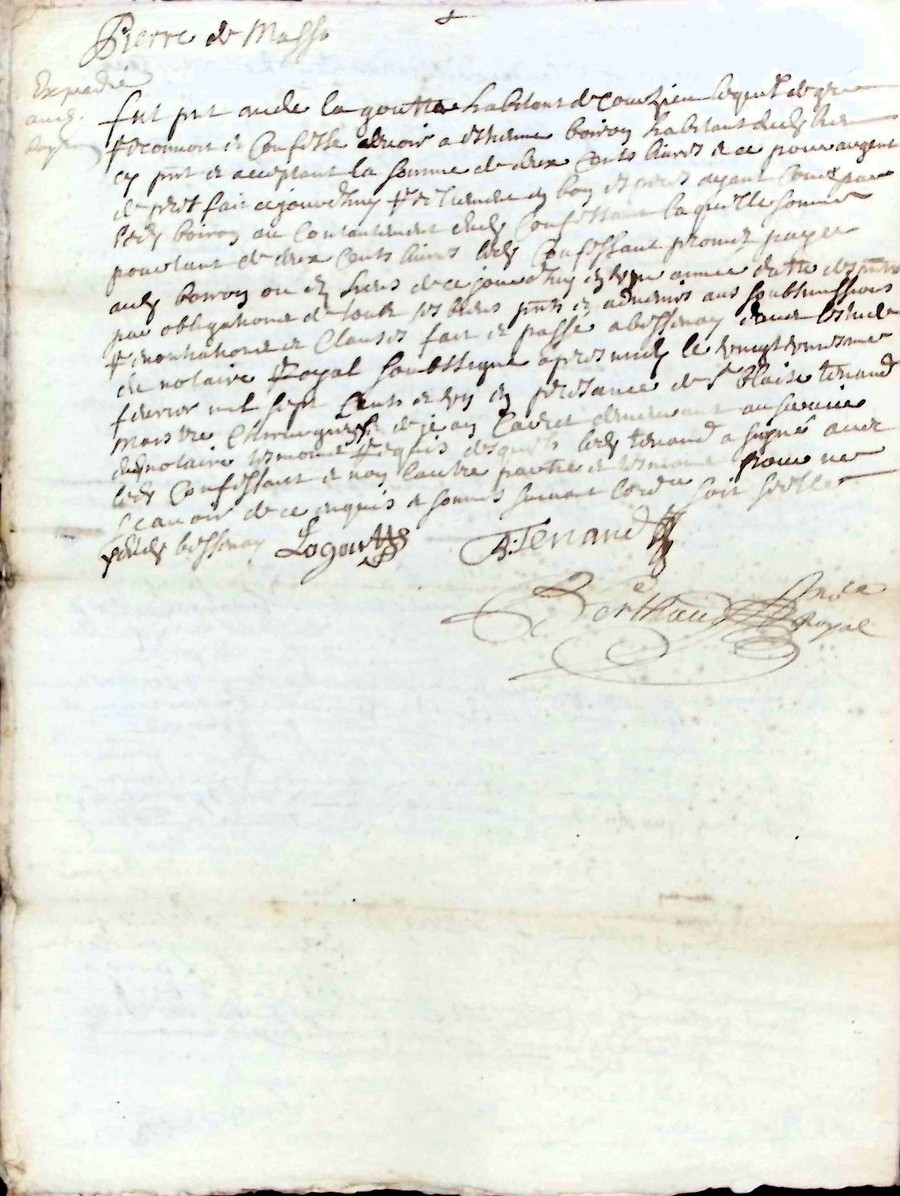 Pierre de Masso
Expedié
aud.
fut pnt aude la goutte habitant de Courzieu lequel de gré
reconnoit et Confesse devoir a esthienne boiron habitant dud. lieu
cy pnt et acceptant la somme de deux Cents livres et ce pour argent
de prest fait cejourdhuy reellement en bon especes ayant Cours par
led. boiron au Contantement dud. Confessant laquelle somme
pourtant de deux Cents livres led. Confessant promet payer
aud. boiron ou es siens de ce jourdhuy en une année datte des pntes
par obligations de touts ses biens pnts et advenirs aux soubmissions
renontiations et Clauses fait et passé a bessenay estude
de notaire Royal soubssigné apres midy le vingt uniesme
fevrier mil sept Cents et un en présance de sr. blaise tenaud
maistre Chirurgien et de jean demeurant au service
dud. notaire tesmoins requis desquels led. tenaud a signé avec
led. Confessant et non lautre partie et tesmoins pour ne
scavoir de ce enquis et sommés suivant lordre soit scellé
aud. bessenay Lagoutte B. Tenaud
Berthaud nore
Royal